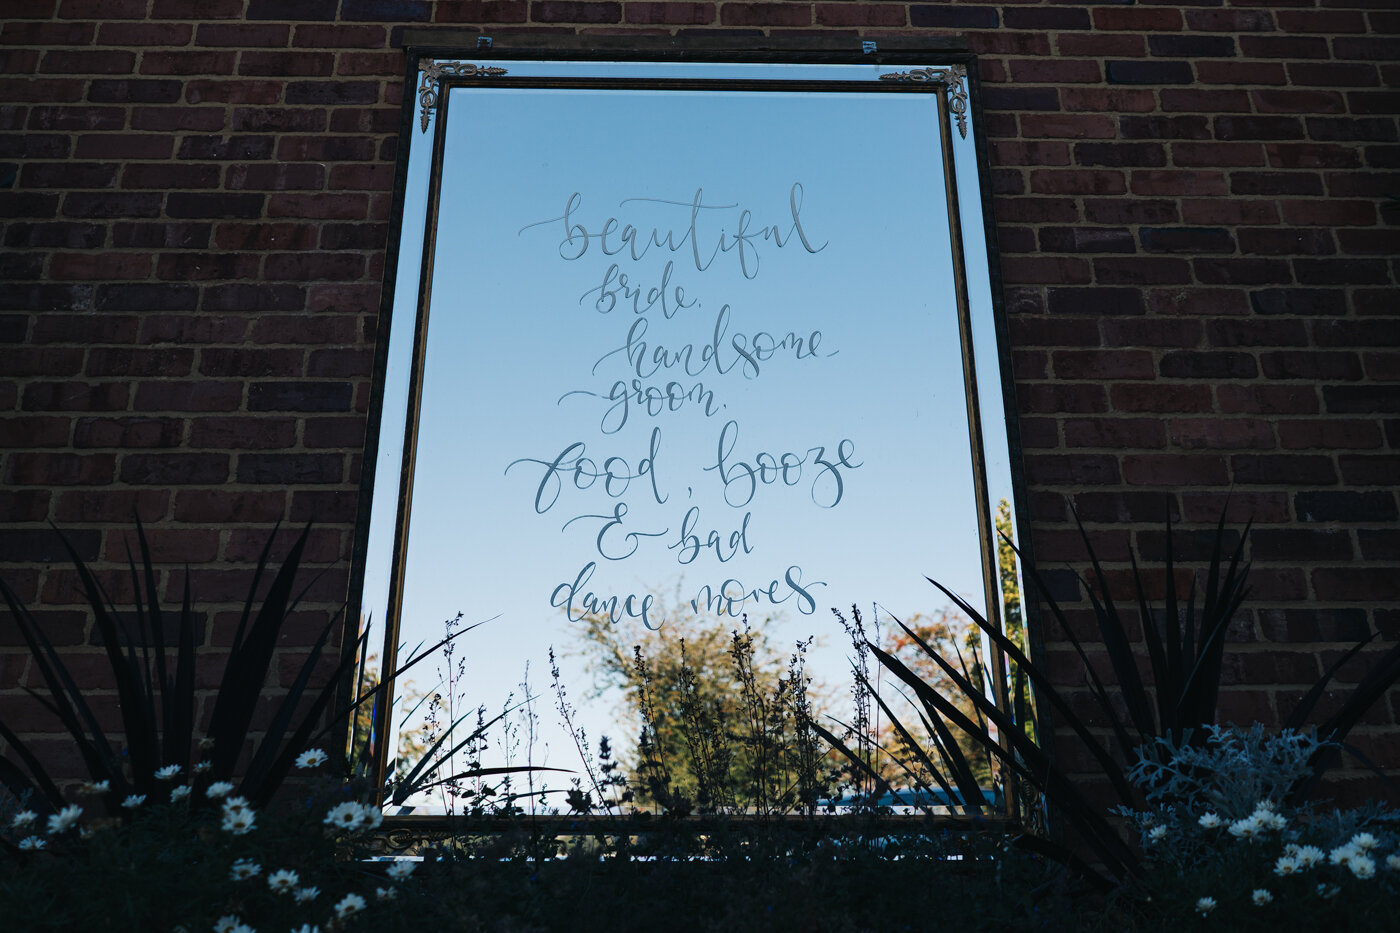 beautiful
bride,
handsome
groom,
food, booze
& bad
dance moves